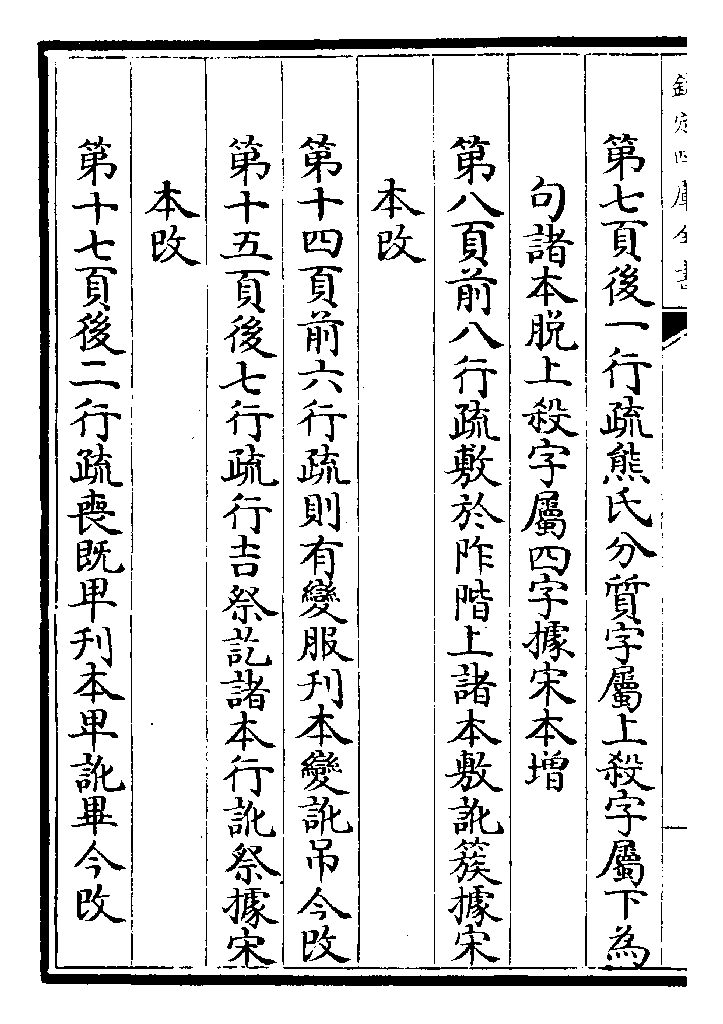 欽定四庫全書
第七頁後一行疏熊氏分質字屬上殺字屬下為
句諸本脱上殺字屬四字據宋本增
第八頁前八行疏敷於阼階上諸本敷訛簇據宋
本改
第十四頁前六行疏則有變服刋本變訛吊今改
第十五頁後七行疏行吉祭訖諸本行訛祭據宋
本改
第十七頁後二行疏喪既卑刋本卑訛畢今改